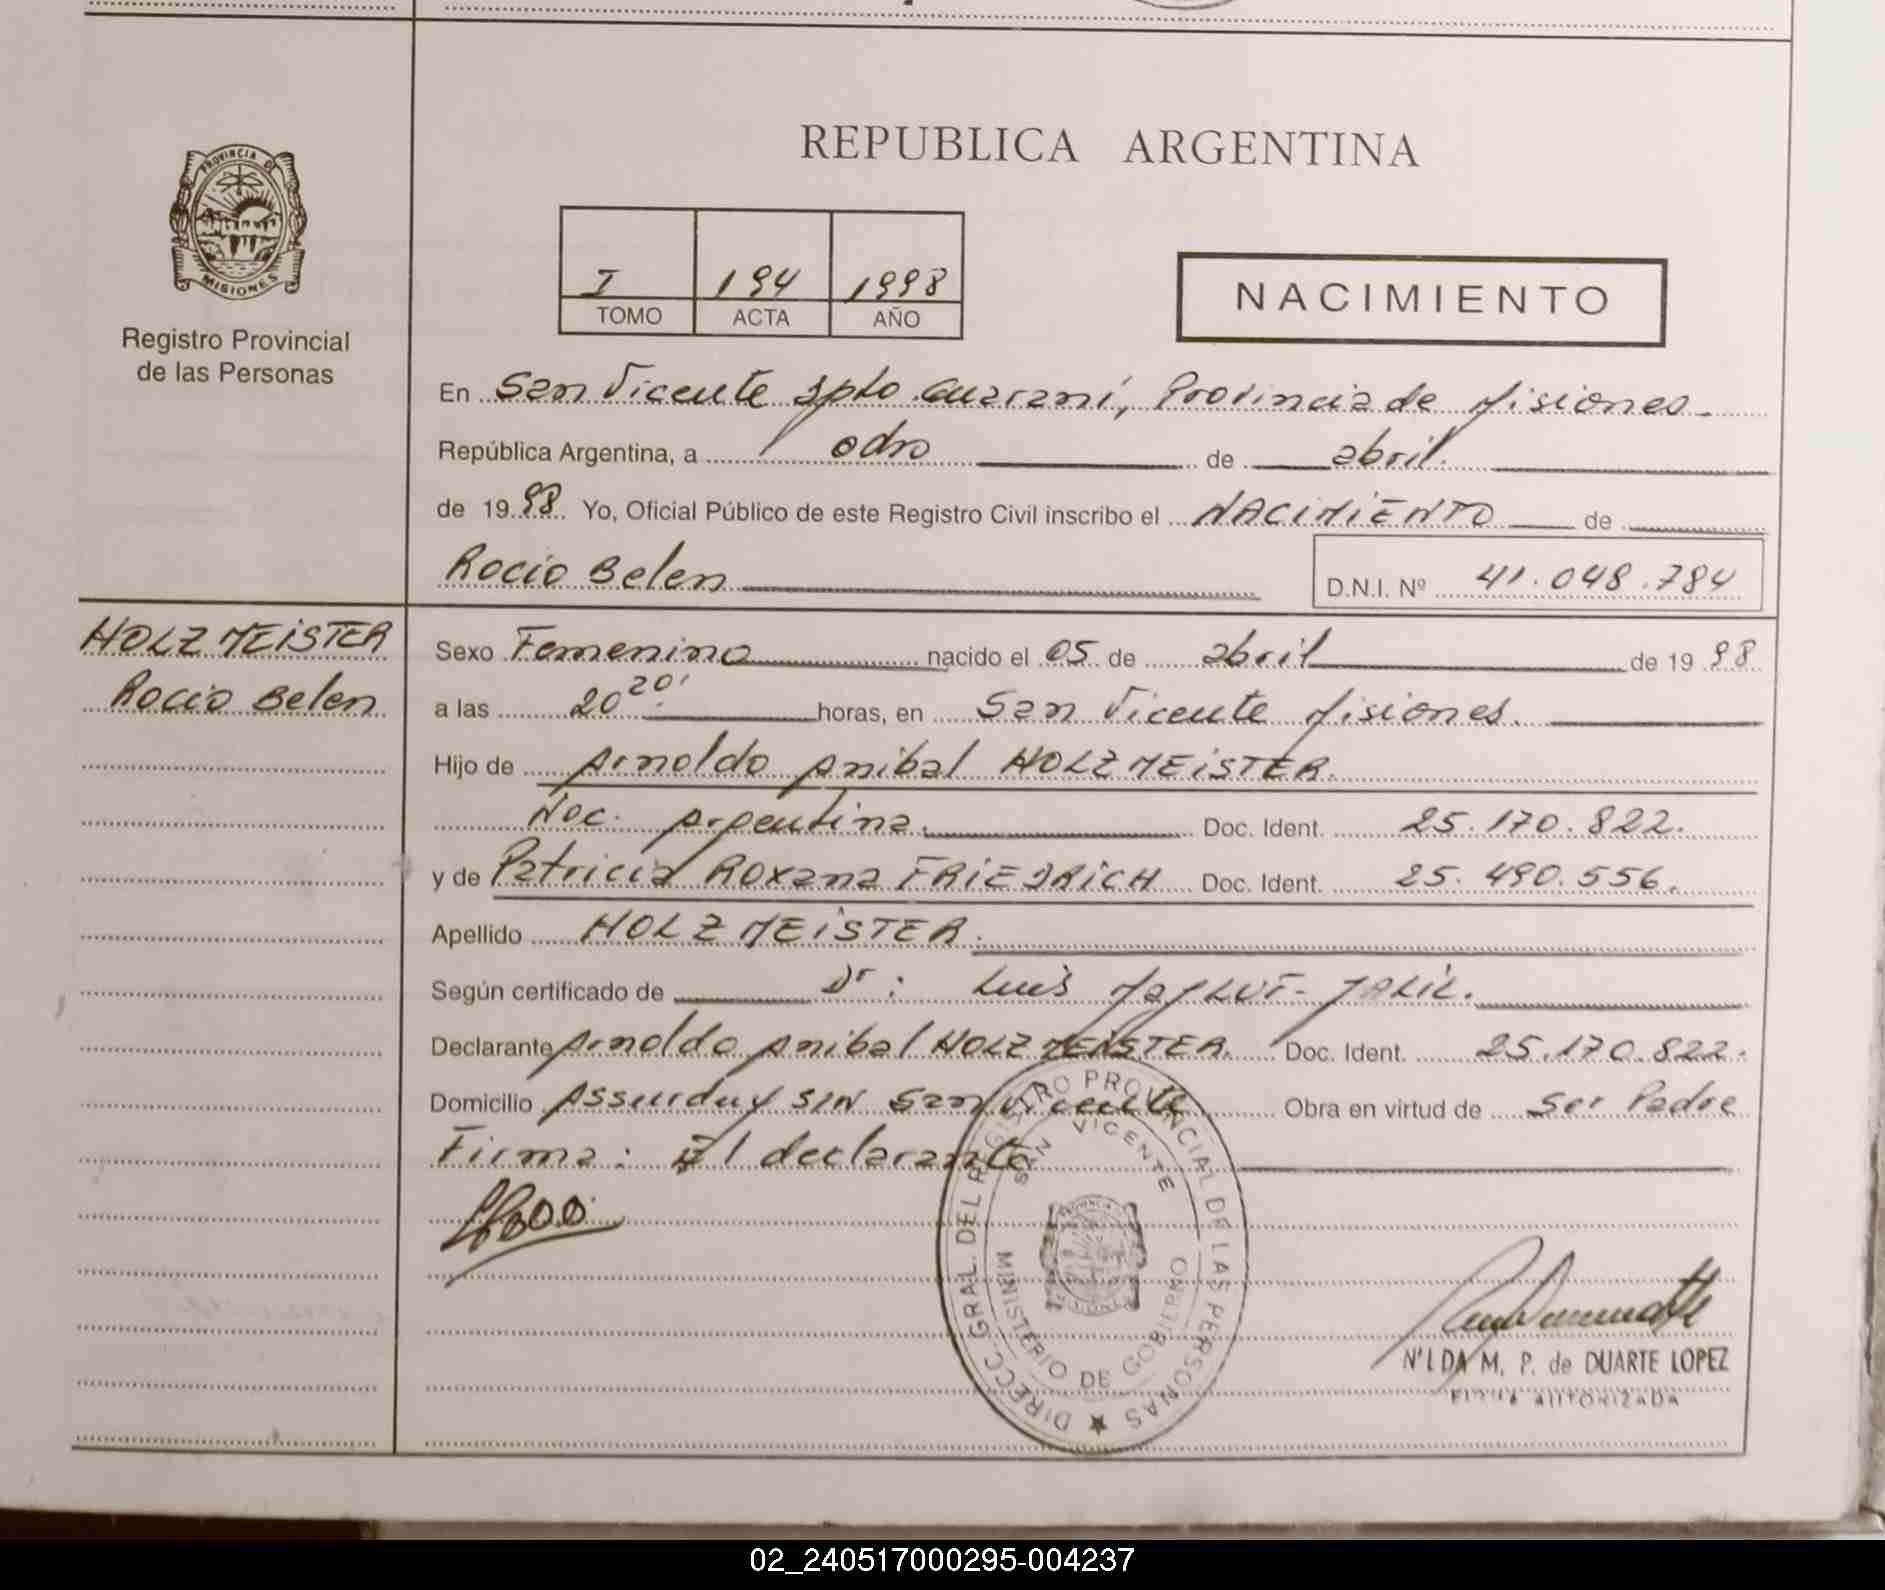 PROVINCIA DE
MISIONES
Registro Provincial
de las Personas
HOLZMEISTER
Rocio Belen
REPUBLICA ARGENTINA
I 194 1998
TOMO ACTA AÑO
NACIMIENTO
En San Vicente Dpto. Guaraní, Provincia de Misiones.
República Argentina, a ocho de abril.
de 1998. Yo, Oficial Público de este Registro Civil inscribo el NACIMIENTO de
Rocio Belen
D.N.I. Nº 41.048.784
Sexo Femenino nacido el 05 de abril de 1998
a las 20 20' horas, en San Vicente Misiones.
Hijo de Arnoldo Anibal HOLZMEISTER.
Nac. Argentina. Doc. Ident. 25.170.822.
y de Patricia Roxana FRIEDRICH Doc. Ident. 25.490.556.
Apellido HOLZMEISTER.
Según certificado de Dr: Luis
Declarante Arnoldo Anibal HOLZMEISTER. Doc. Ident. 25.170.822.
Domicilio Assurduy S/N San Vicente Obra en virtud de Ser Padre
Firma: El declarante
DIRECC. GRAL. DEL REGISTRO PROVINCIAL DE LAS PERSONAS
SAN VICENTE
MINISTERIO DE GOBIERNO
N'LDA M. P. de DUARTE LOPEZ
FIRMA AUTORIZADA
02_240517000295-004237